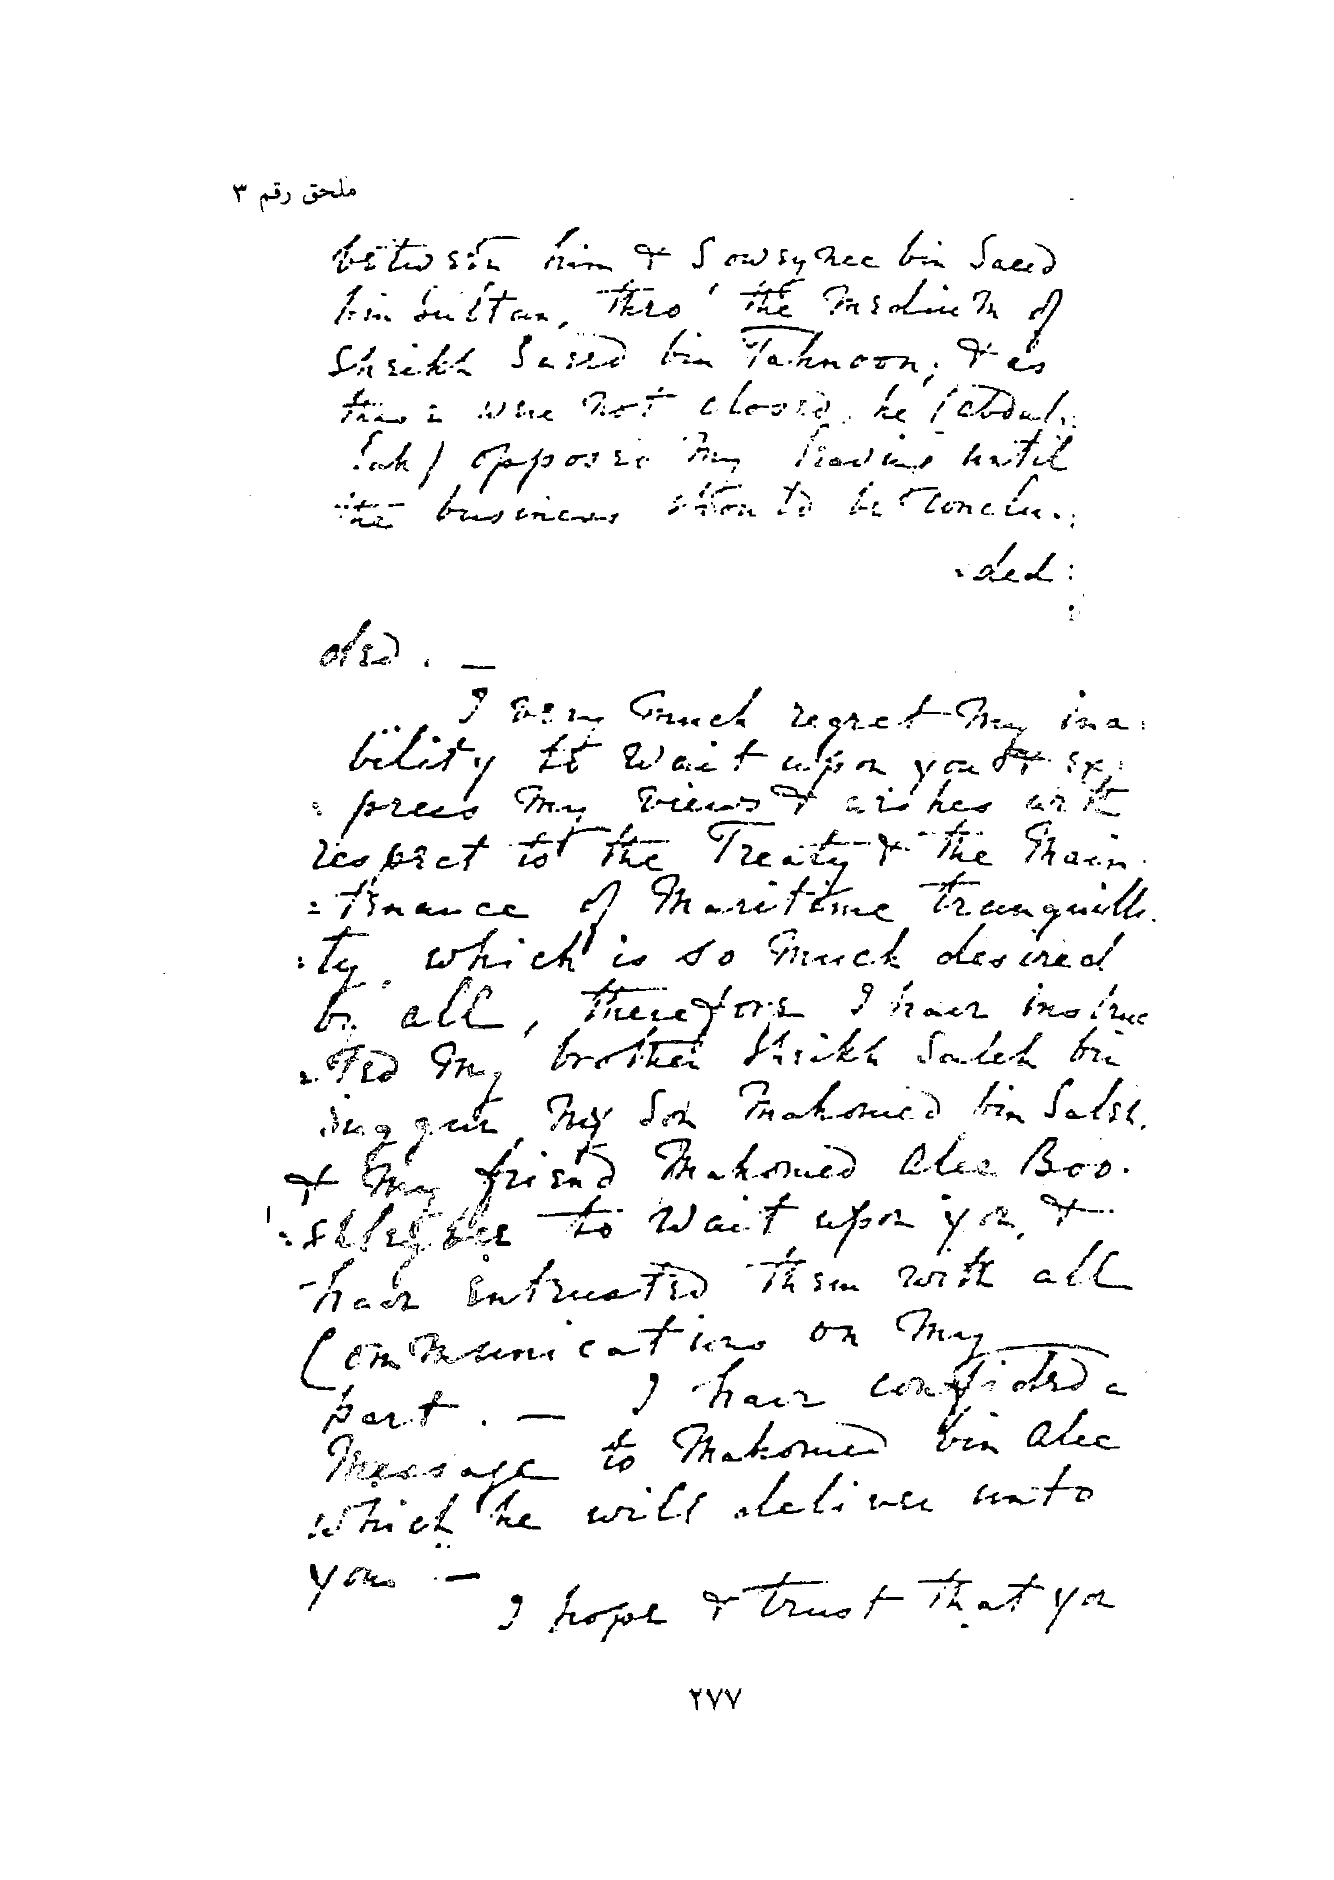 ملحق رقم ٣
between him & Sowsynee bin Saeed
bin Sultan, thro' the medium of
Sheikh Saeed bin Tahnoon; & as
these were not closed, he (Abdul-
lah) opposed my leaving until
the business should be conclu-
-ded
ded. —
I very much regret my ina-
bility to wait upon you & ex-
-press my views & wishes with
respect to the Treaty & the main-
-tenance of Maritime tranquilli-
-ty, which is so much desired
by all, therefore I have instruc
-ted my brother Sheikh Saleh bin
Suggur, my son Mahomed bin Salei,
& my friend Mahomed Alee Boo-
to wait upon you, &
have entrusted them with all
Communications on my
part. — I have confided a
message to Mahomed bin Alee
which he will deliver unto
you —
I hope & trust that you
٢٧٧